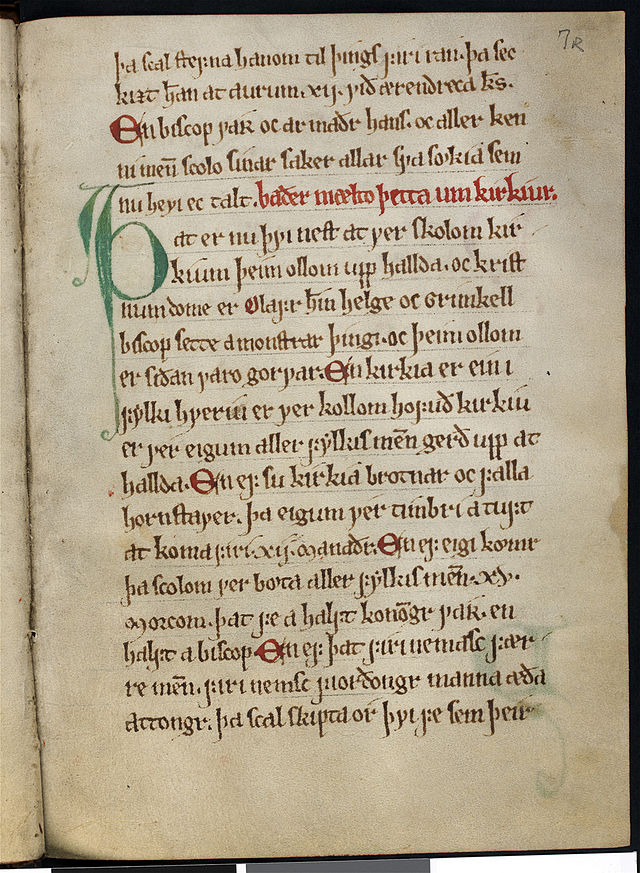 7R
þa scal stefna hanom til þings firi ran. þa sec
kizt han at aurum .xij. við ærendreca ks.
En biscop var oc armaðr hans. oc aller ken
ni men scolo sinar saker allar sva sokia sem
nu hevi ec talt. baðer mælto þetta um kirkiur.
Þat er nu þvi nest at ver skolom kir
kium þeim ollom upp hallda. oc krist
num dome er Olafr hin helge oc Grimkell
biscop sette a monstrar þingi. oc þeim ollom
er siðan varo gorvar. En kirkia er ein i
fylki hveriu er ver kollom hofuð kirkiu
er ver eigum aller fylkis men gerð upp at
hallda. En ef su kirkia brotnar oc falla
hornstaver. þa eigum ver timbri a tuft
at koma firi .xij. manaðr. En ef eigi komr
þa scolom ver bota aller fylkis men .xv.
morcom. þat fe a halft konongr var. en
halft a biscop. En ef þat firi nemasc fær
re men. firi nemsc fiorðongr manna æða
attongr. þa scal skipta or þvi fe sem þeir